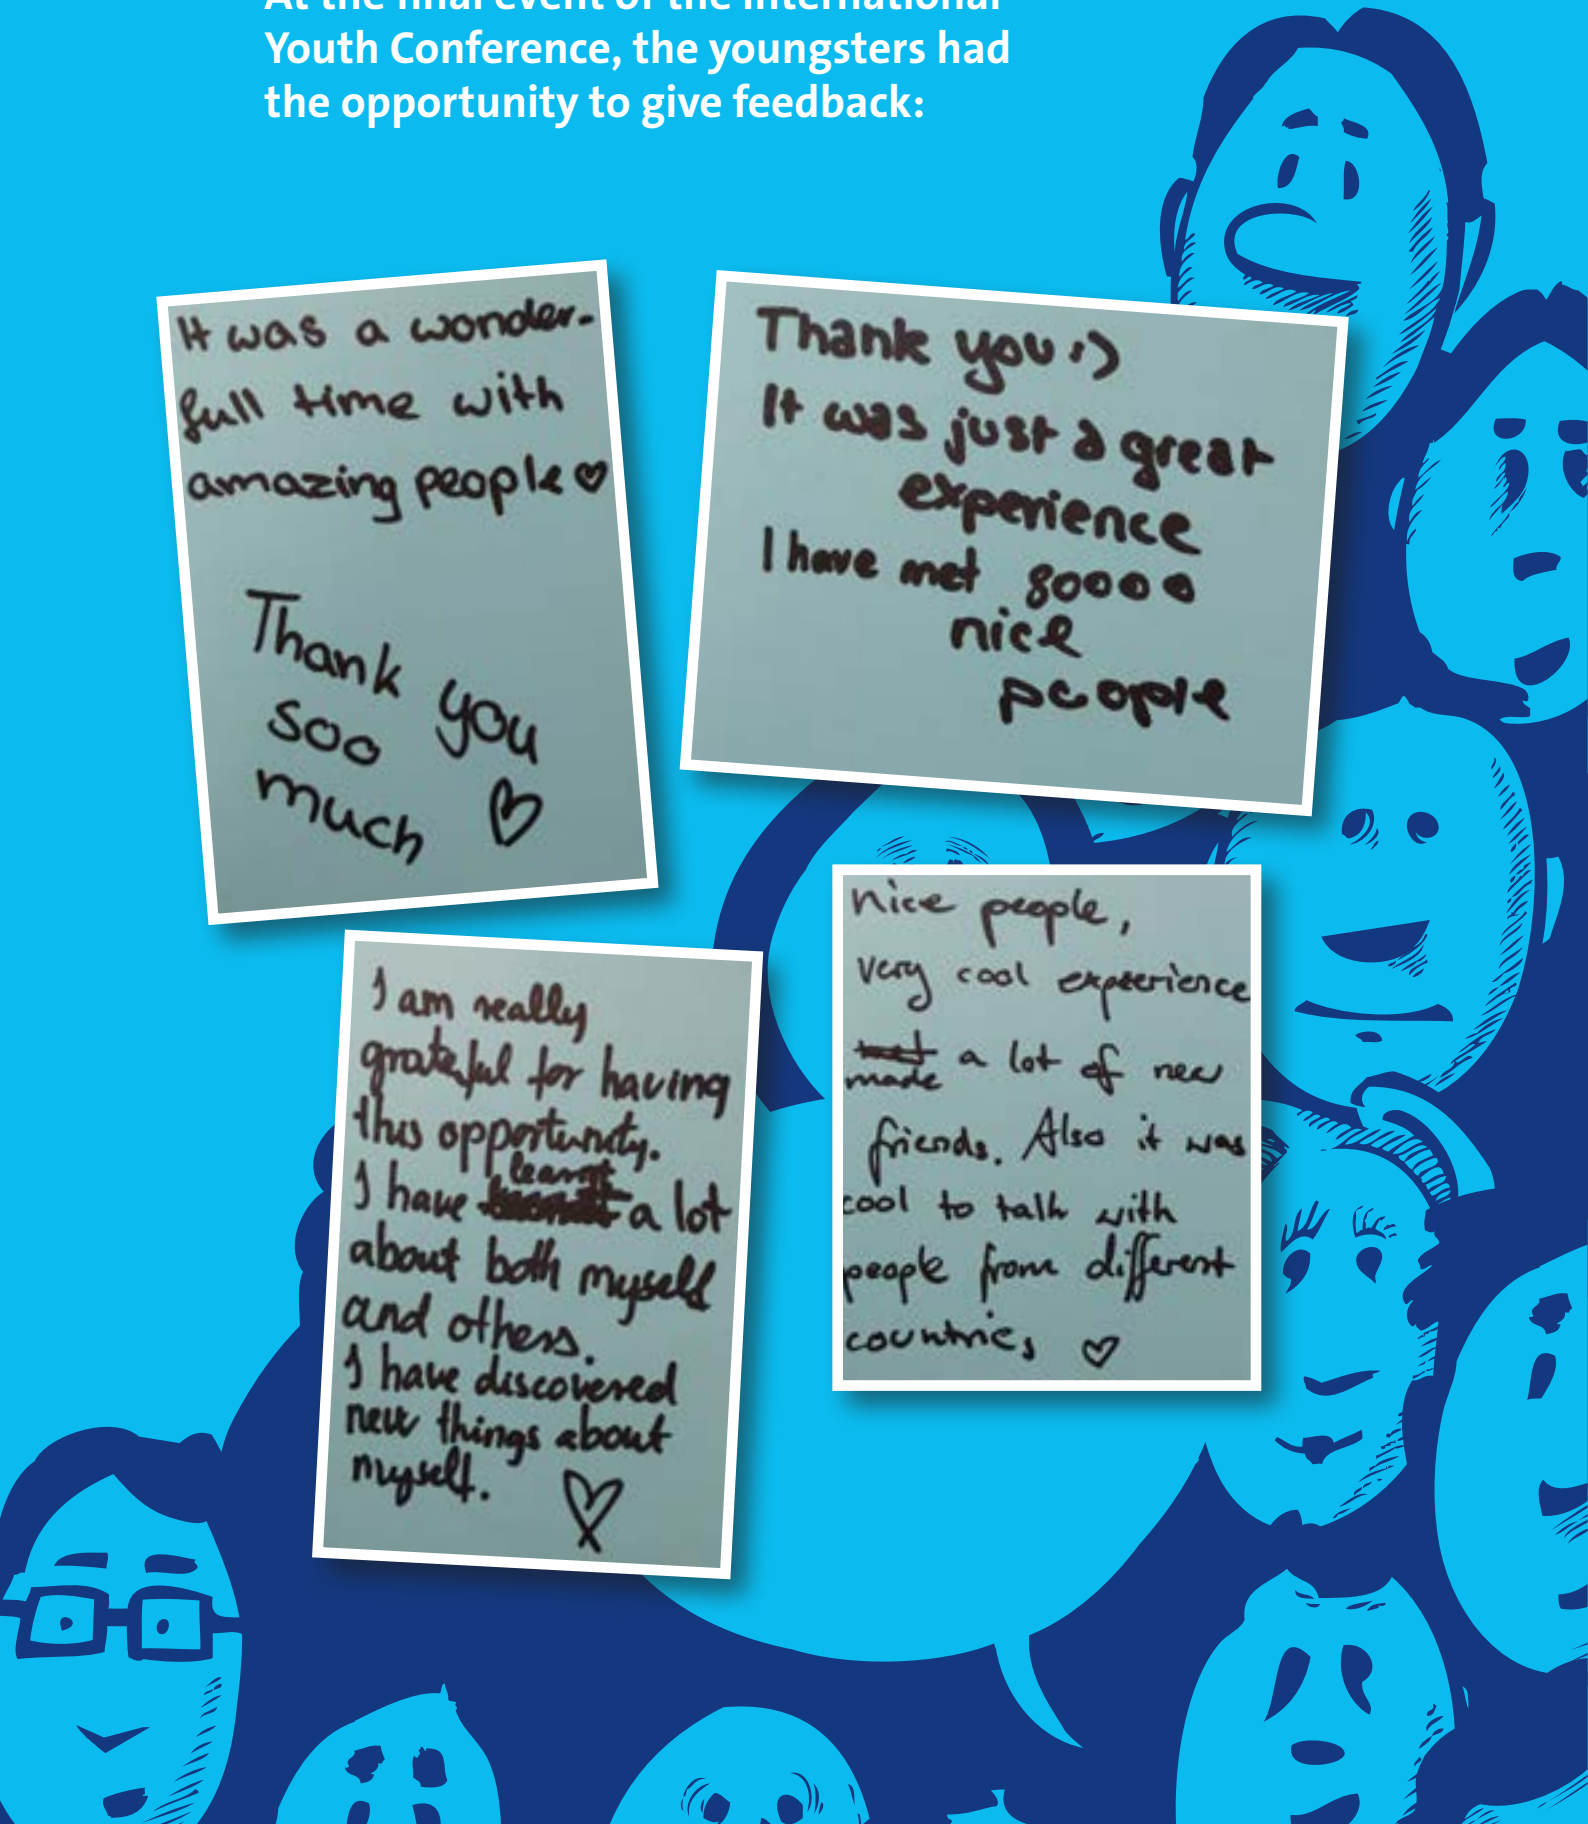 At the final event of the International
Youth Conference, the youngsters had
the opportunity to give feedback:
It was a wonder-
full time with
amazing people ♡
Thank you
soo
much ♡
Thank you :)
It was just a great
experience
I have met soooo
nice
people
I am really
grateful for having
this opportunity.
learnt
I have a lot
about both myself
and others.
I have discovered
new things about
myself. ♡
nice people,
very cool experience
met a lot of new
made
friends. Also it was
cool to talk with
people from different
countries ♡